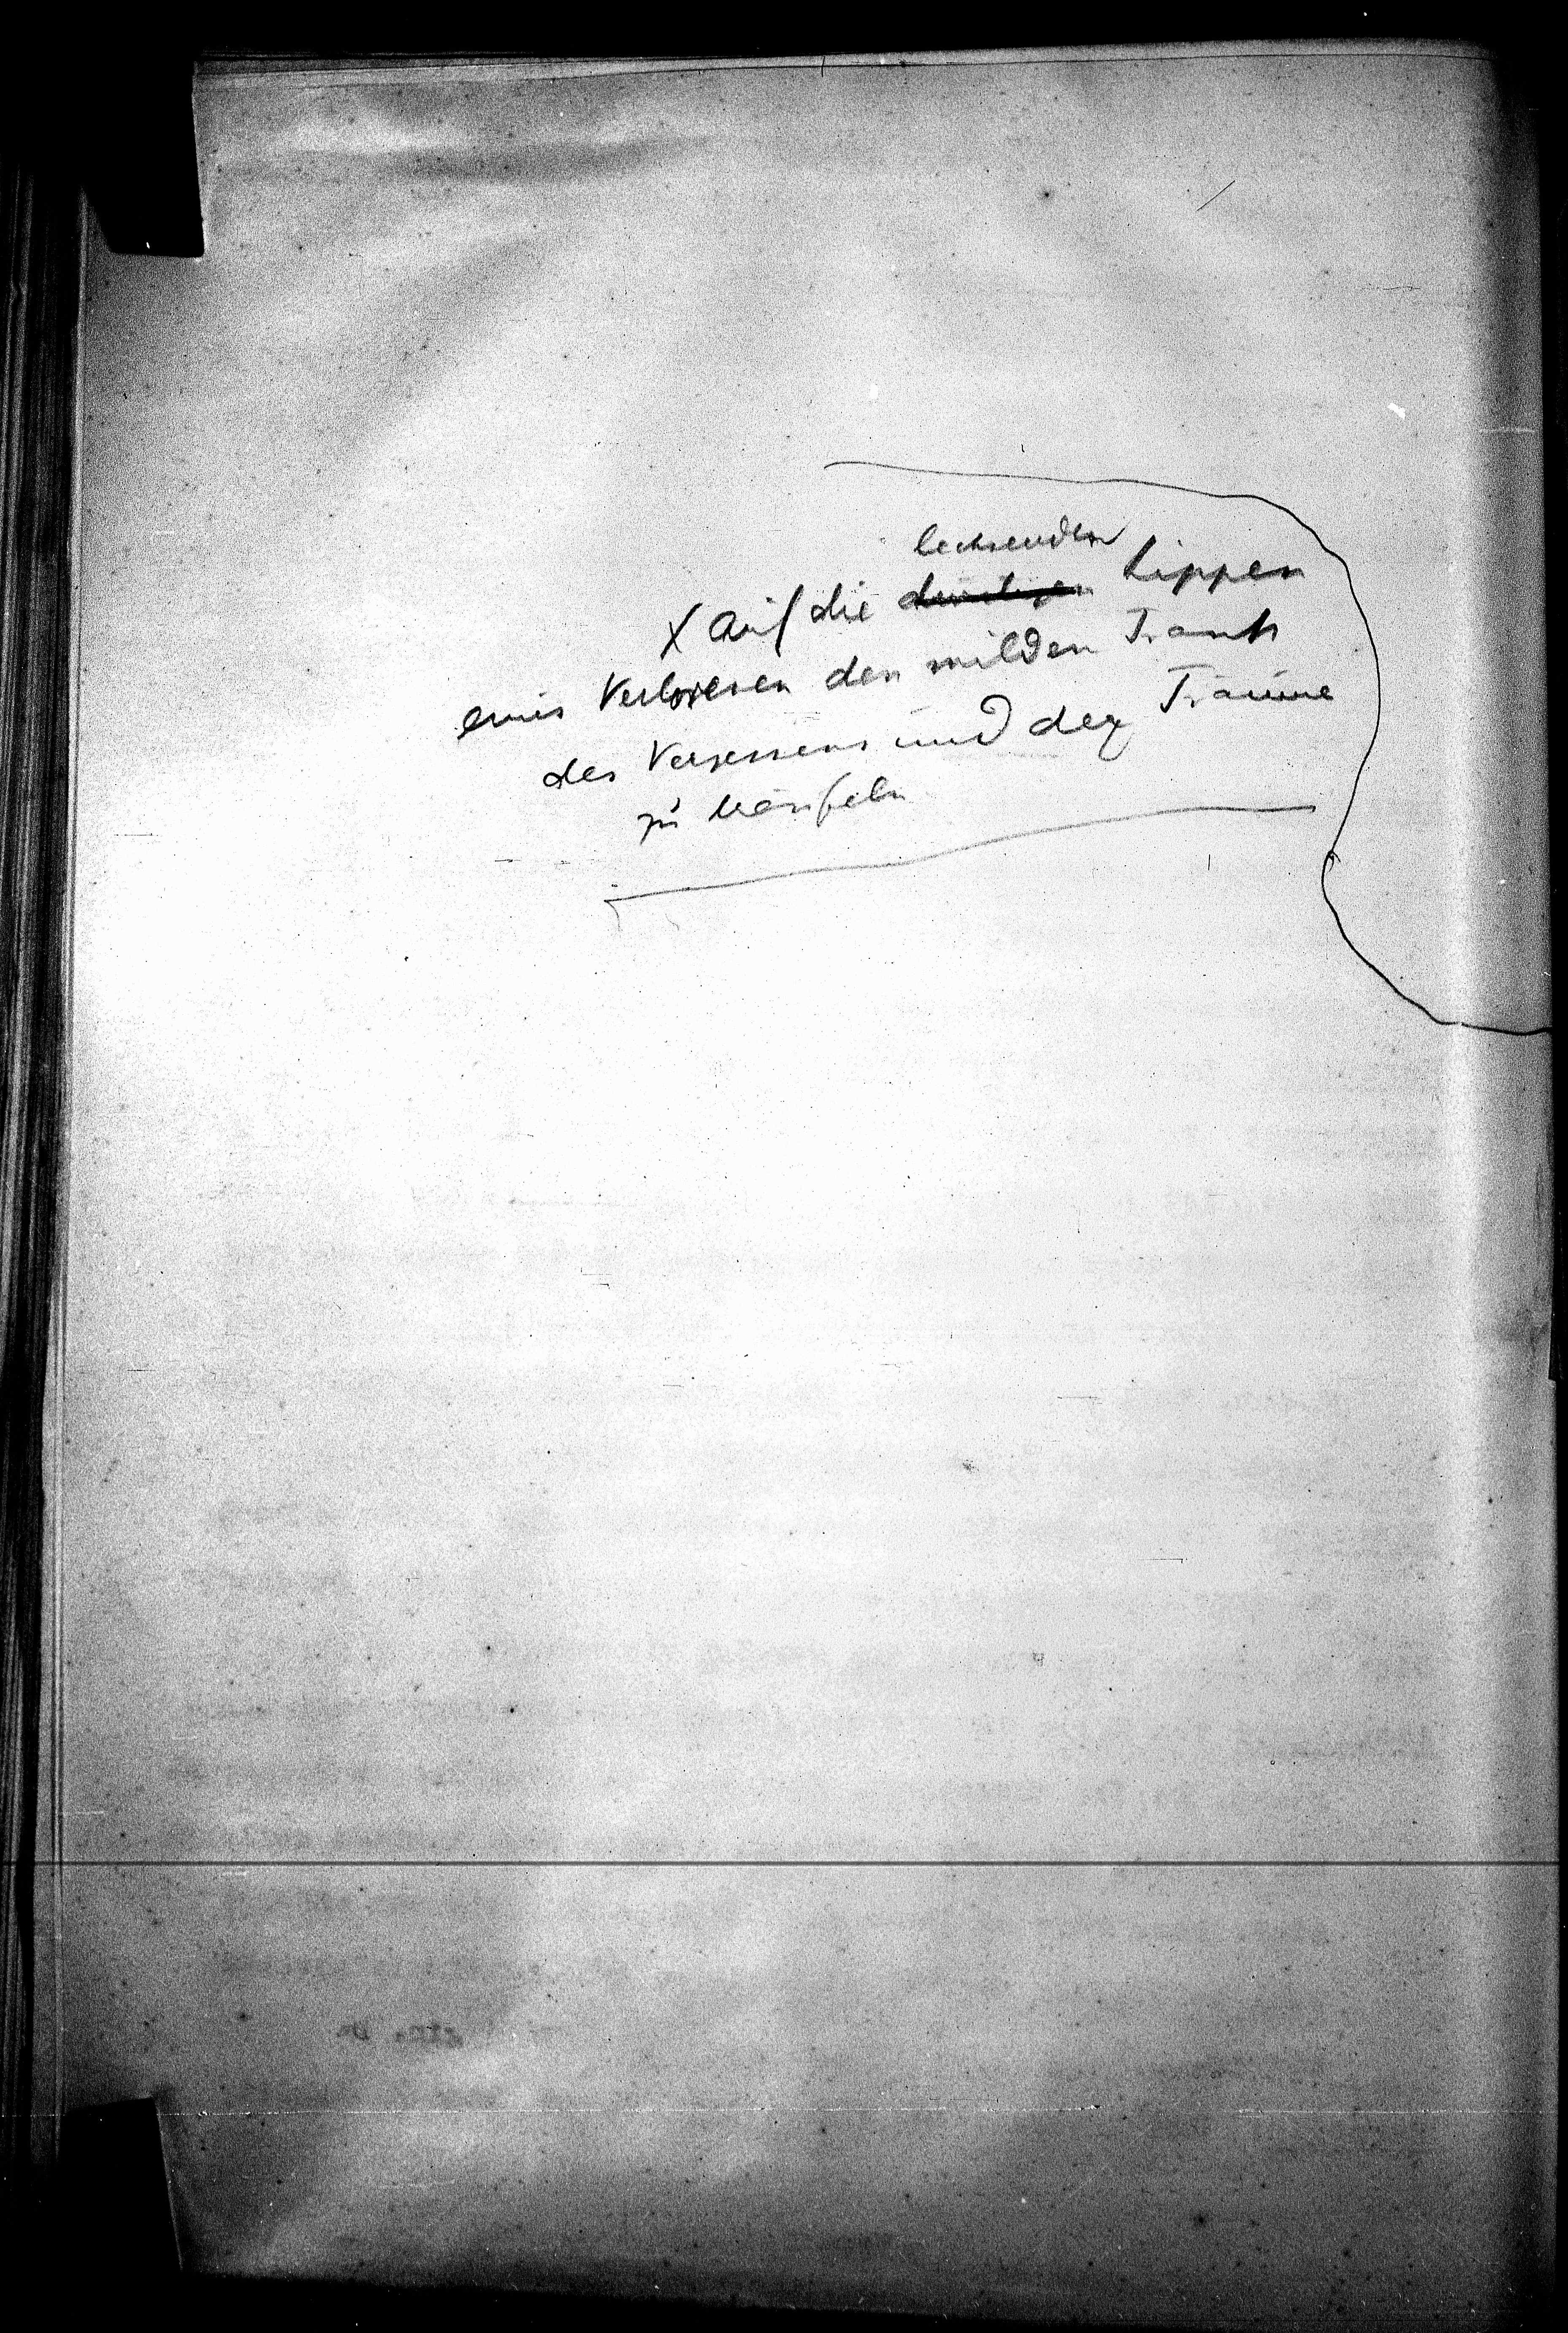 lechzenden
X auf die durstigen Lippen
eines Verlorenen den milden Trank
des Vergessens und der Träume
zu träufeln